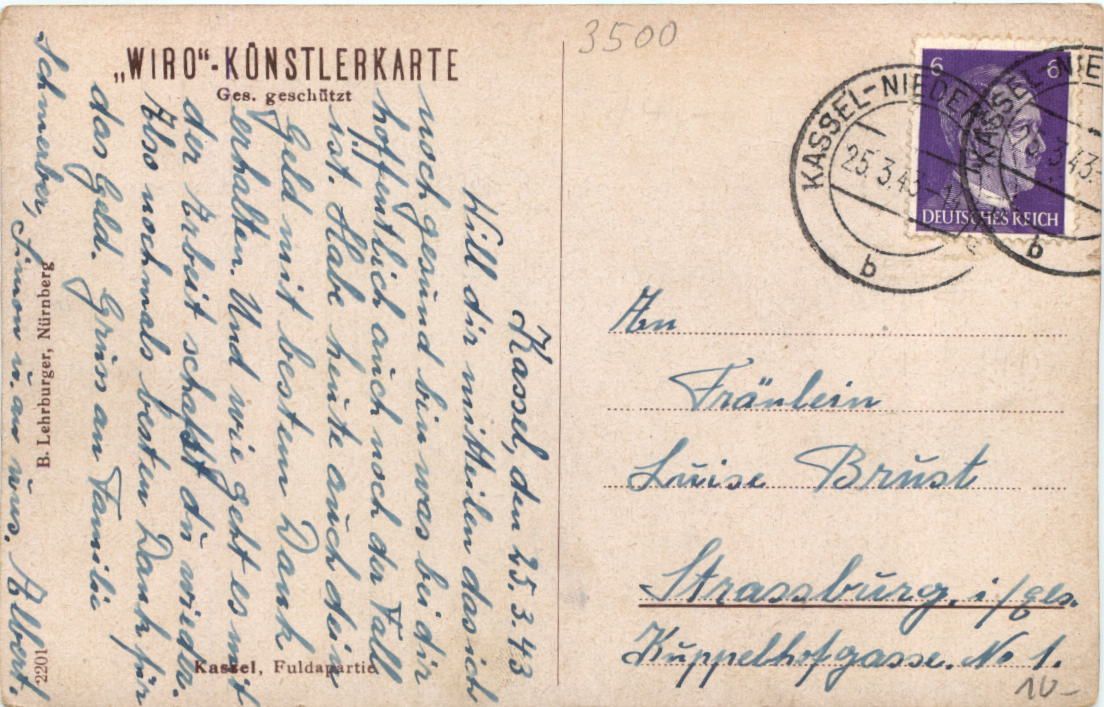 „WIRO“-KÜNSTLERKARTE
Ges. geschützt
Kassel, den 25.3.43
Will dir mitteilen das ich
noch gesund bin was bei dir
hoffentlich auch noch der Fall
ist. Habe heute auch deine
Geld mit bestem Dank
erhalten. Und wie geht es mit
der Arbeit schaffst du wieder.
Also nochmals besten Dank für
das Geld. Gruss an Familie
Schmerber, Simon u. an
Albert.
B. Lehrburger, Nürnberg
2201
Kassel, Fuldapartie
3500
6 6
DEUTSCHES REICH
KASSEL-NIEDER
25.3.43
b
KASSEL-NIE
3.43
b
An
Fräulein
Luise Brust
Strassburg, i/
Kuppelhofgasse. No 1.
10-